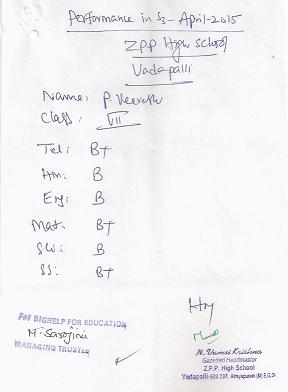 Performance in S3 - April-2015
ZPP High School
Vadapalli
Name: P Veeresh
Class: VII
Tel: B+
Hin: B
Eng: B
Mat: B+
SS: B+
For BIGHELP FOR EDUCATION
M. Sarojini
MANAGING TRUSTEE
N. Vamsi Krishna
Gazetted Headmaster
Z.P.P. High School
Vadapalli-533 237, Atreyapuram (M) E.G.Dt